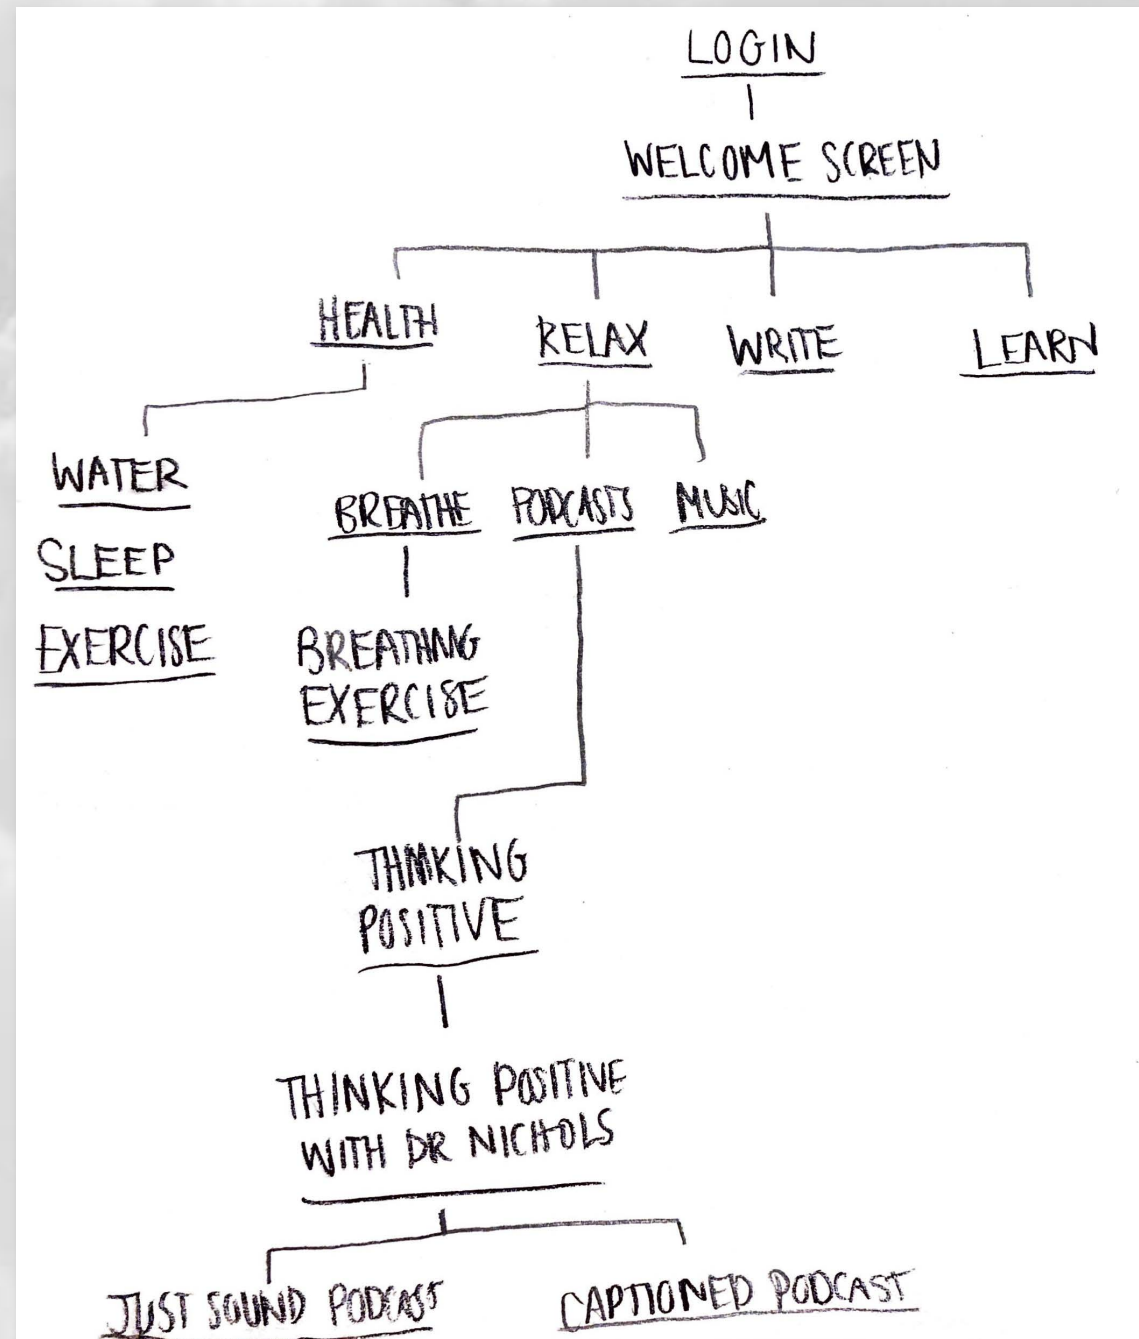 LOGIN
WELCOME SCREEN
HEALTH
RELAX
WRITE
LEARN
WATER
SLEEP
EXERCISE
BREATHE
PODCASTS
MUSIC
BREATHING
EXERCISE
THINKING
POSITIVE
THINKING POSITIVE
WITH DR NICHOLS
JUST SOUND PODCAST
CAPTIONED PODCAST